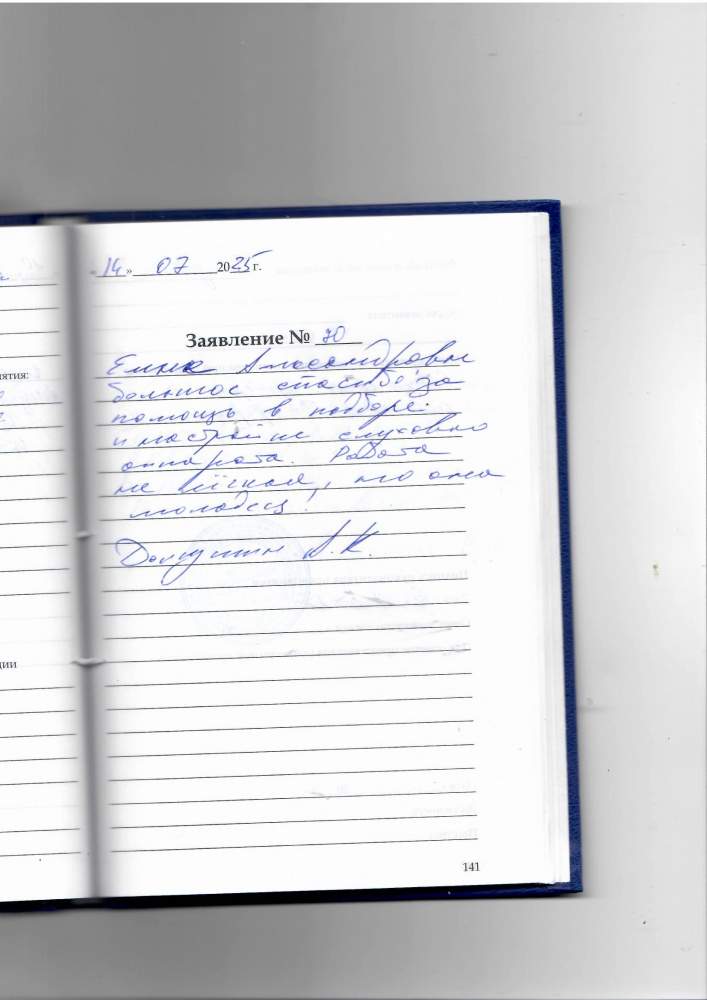 «14» 07 2025 г.
Заявление № 70
Елена Александровна
большое спасибо за
помощь в подборе
и настройке слухового
аппарата. Работа
не лёгкая, но она
молодец!
А.К.
ятия:
ции
141